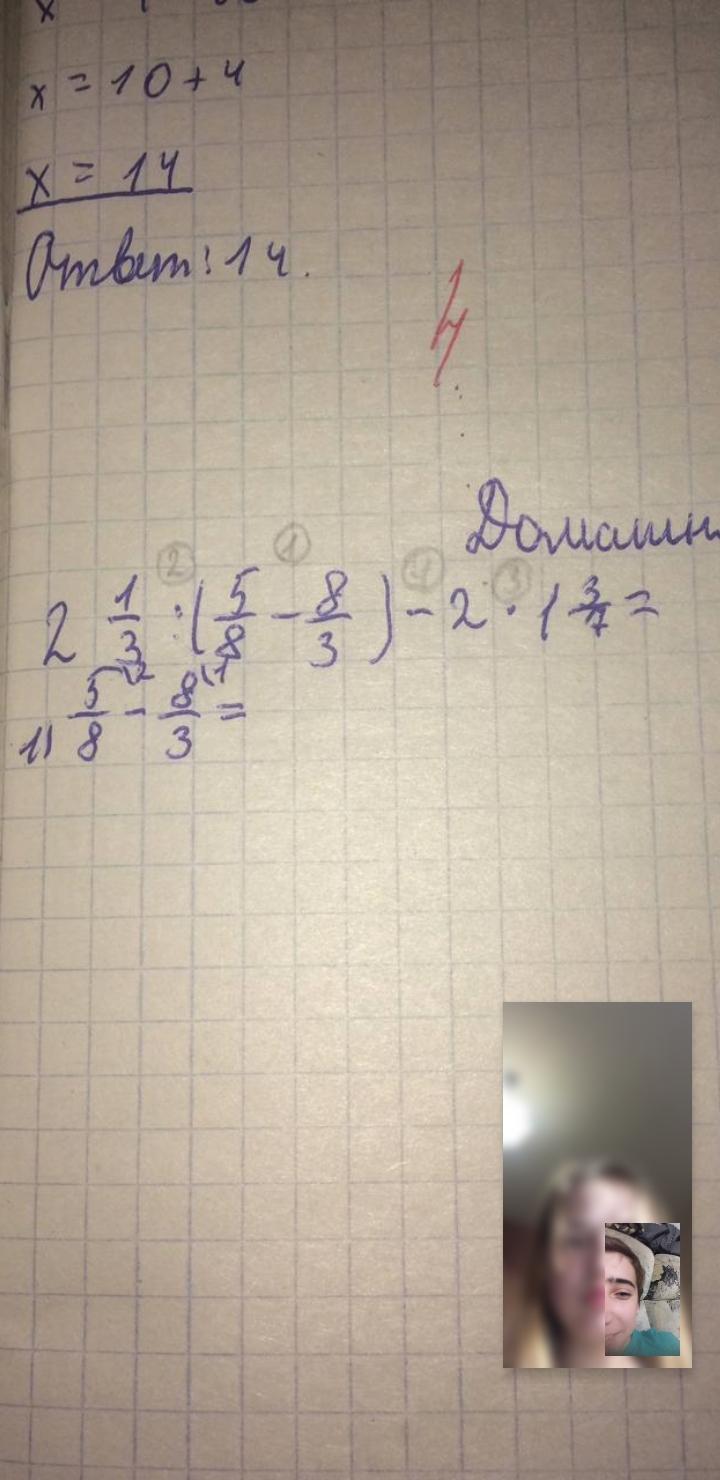 x = 10 + 4
x = 14
Ответ: 14.
4
Домашн
2 1/3 : (5/8 - 8/3) - 2 · 1 3/7 =
1) 5/8 - 8/3 =